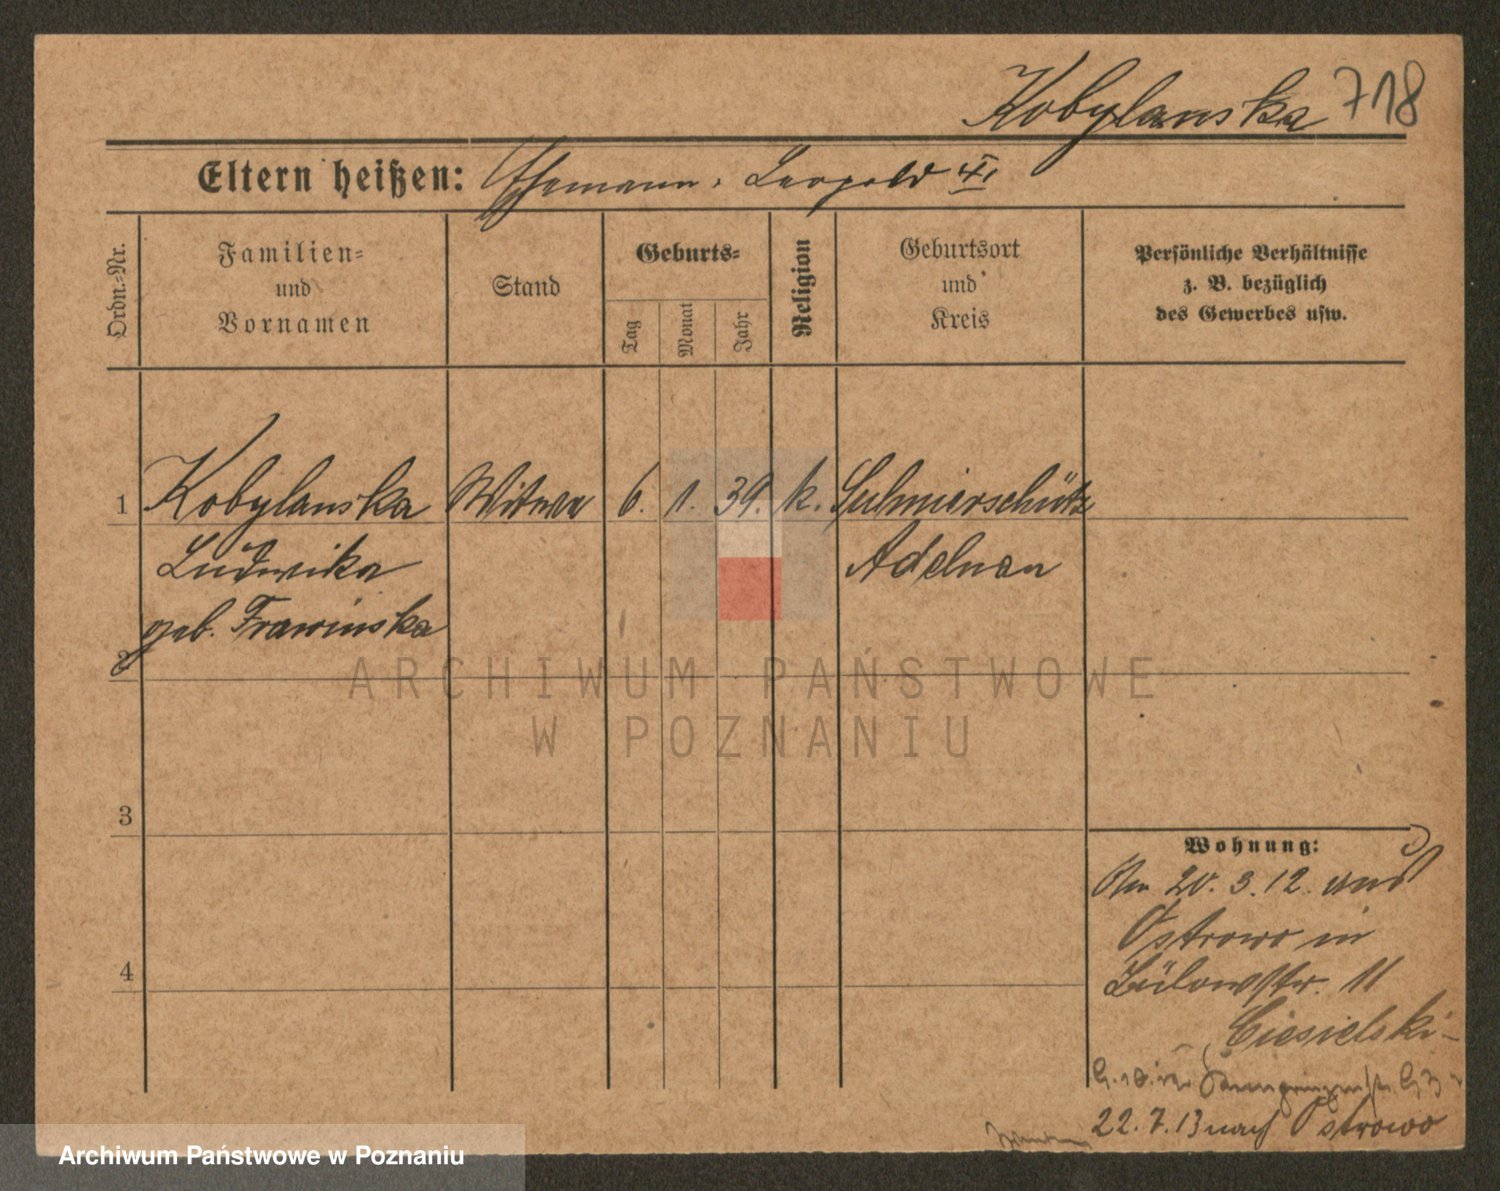 Kobylanska 718
Eltern heißen: Ehemann: Leopold
Ordn.-Nr.
Familien-
und
Vornamen
Stand
Geburts-
Tag
Monat
Jahr
Religion
Geburtsort
und
Kreis
Persönliche Verhältnisse
z. B. bezüglich
des Gewerbes usw.
1 Kobylanska Witwe 6. 1. 39. k. Sulmierschütz
Ludwika Adelnau
geb. Frawinska
2
3
4
Wohnung:
20. 3. 12. aus
Ostrowo in
Bülowstr. 11
Ciesielski
22. 7. 13 nach Ostrowo
ARCHIWUM PAŃSTWOWE
W POZNANIU
Archiwum Państwowe w Poznaniu